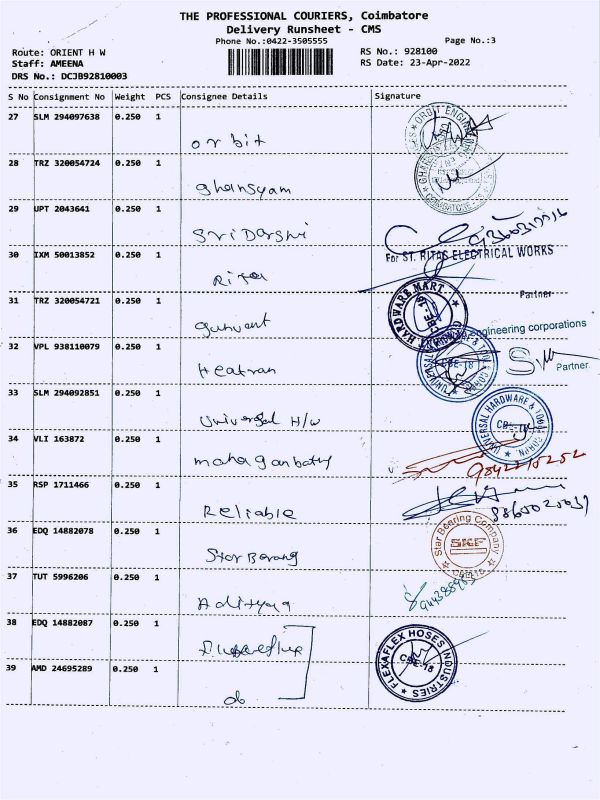 THE PROFESSIONAL COURIERS, Coimbatore
Delivery Runsheet - CMS
Phone No.:0422-3505555
Page No.:3
Route: ORIENT H W
RS No.: 928100
Staff: AMEENA
RS Date: 23-Apr-2022
DRS No.: DCJB92810003
S No Consignment No Weight PCS Consignee Details Signature
27 SLM 294097638 0.250 1
orbit
ORBIT ENGINEE
28 TRZ 320054724 0.250 1
ghansyam
COIMBATORE
29 UPT 2043641 0.250 1
Sri Darshi
30 IXM 50013852 0.250 1
For ST. RITAS ELECTRICAL WORKS
Rita
Partner
31 TRZ 320054721 0.250 1
HARDWARE MART
CBE-18
gunvant
Engineering corporations
32 VPL 938110079 0.250 1
UNIVERSAL HARDWARE & TOOL CORPN.
CBE-18
Partner.
Heatran
33 SLM 294092851 0.250 1
UNIVERSAL HARDWARE & TOOL CORPN.
CBE-18
Universal H/w
34 VLI 163872 0.250 1
mahaganbathy
9842215252
35 RSP 1711466 0.250 1
Reliable
36 EDQ 14882078 0.250 1
Star Bearing Company
SKF
CBE-18
Star Berang
37 TUT 5996206 0.250 1
Adithya
38 EDQ 14882087 0.250 1
FLEXAFLEX HOSES INDUSTRIES
CBE-18
39 AMD 24695289 0.250 1
do